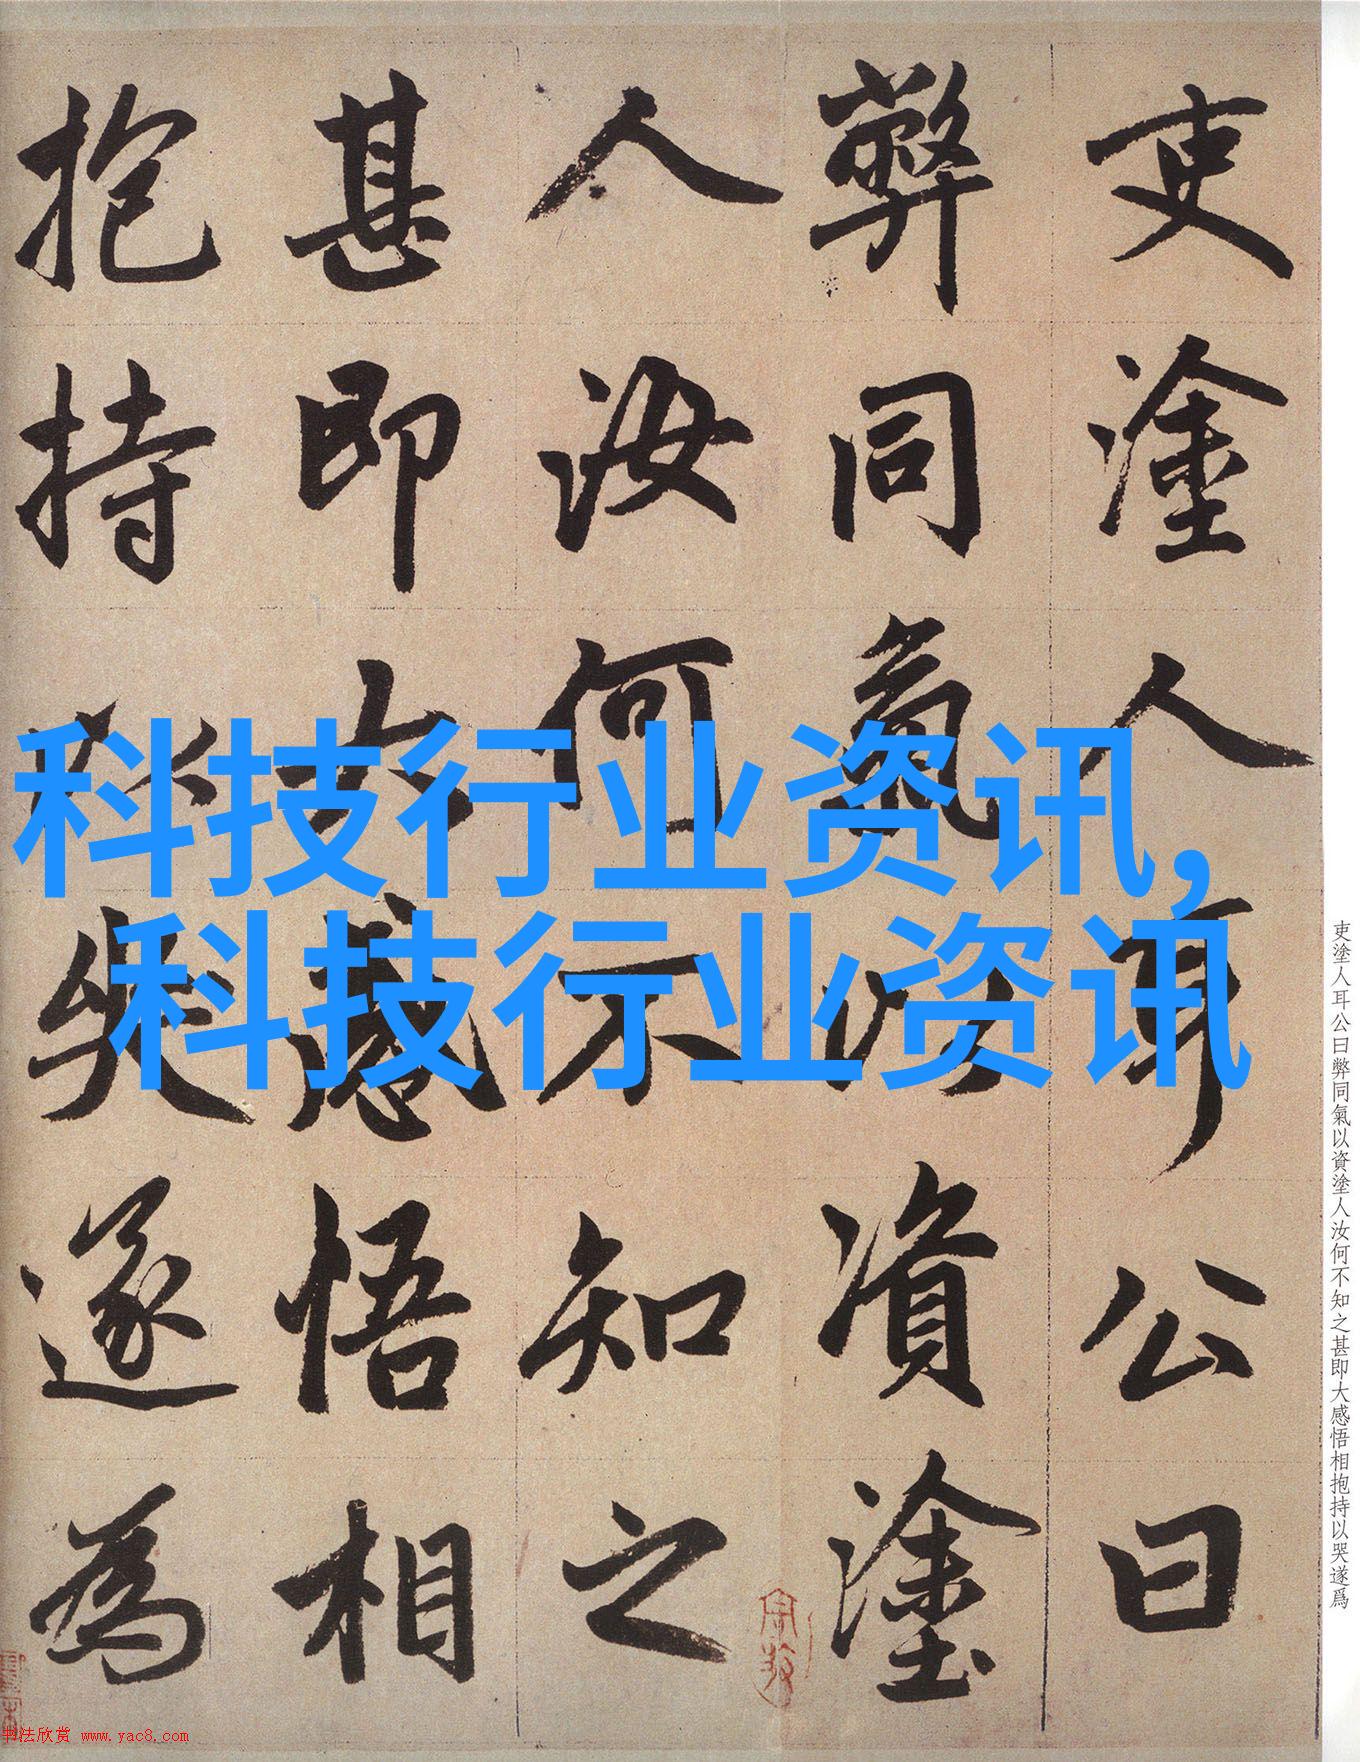 吏塗人耳公曰
弊同氣以資塗
人汝何不知之
甚即大感悟相
抱持以哭遂為
科技行业资讯,
科技行业资讯
吏塗人耳公曰弊同氣以資塗人汝何不知之甚即大感悟相抱持以哭遂爲
书法欣赏 www.yac8.com